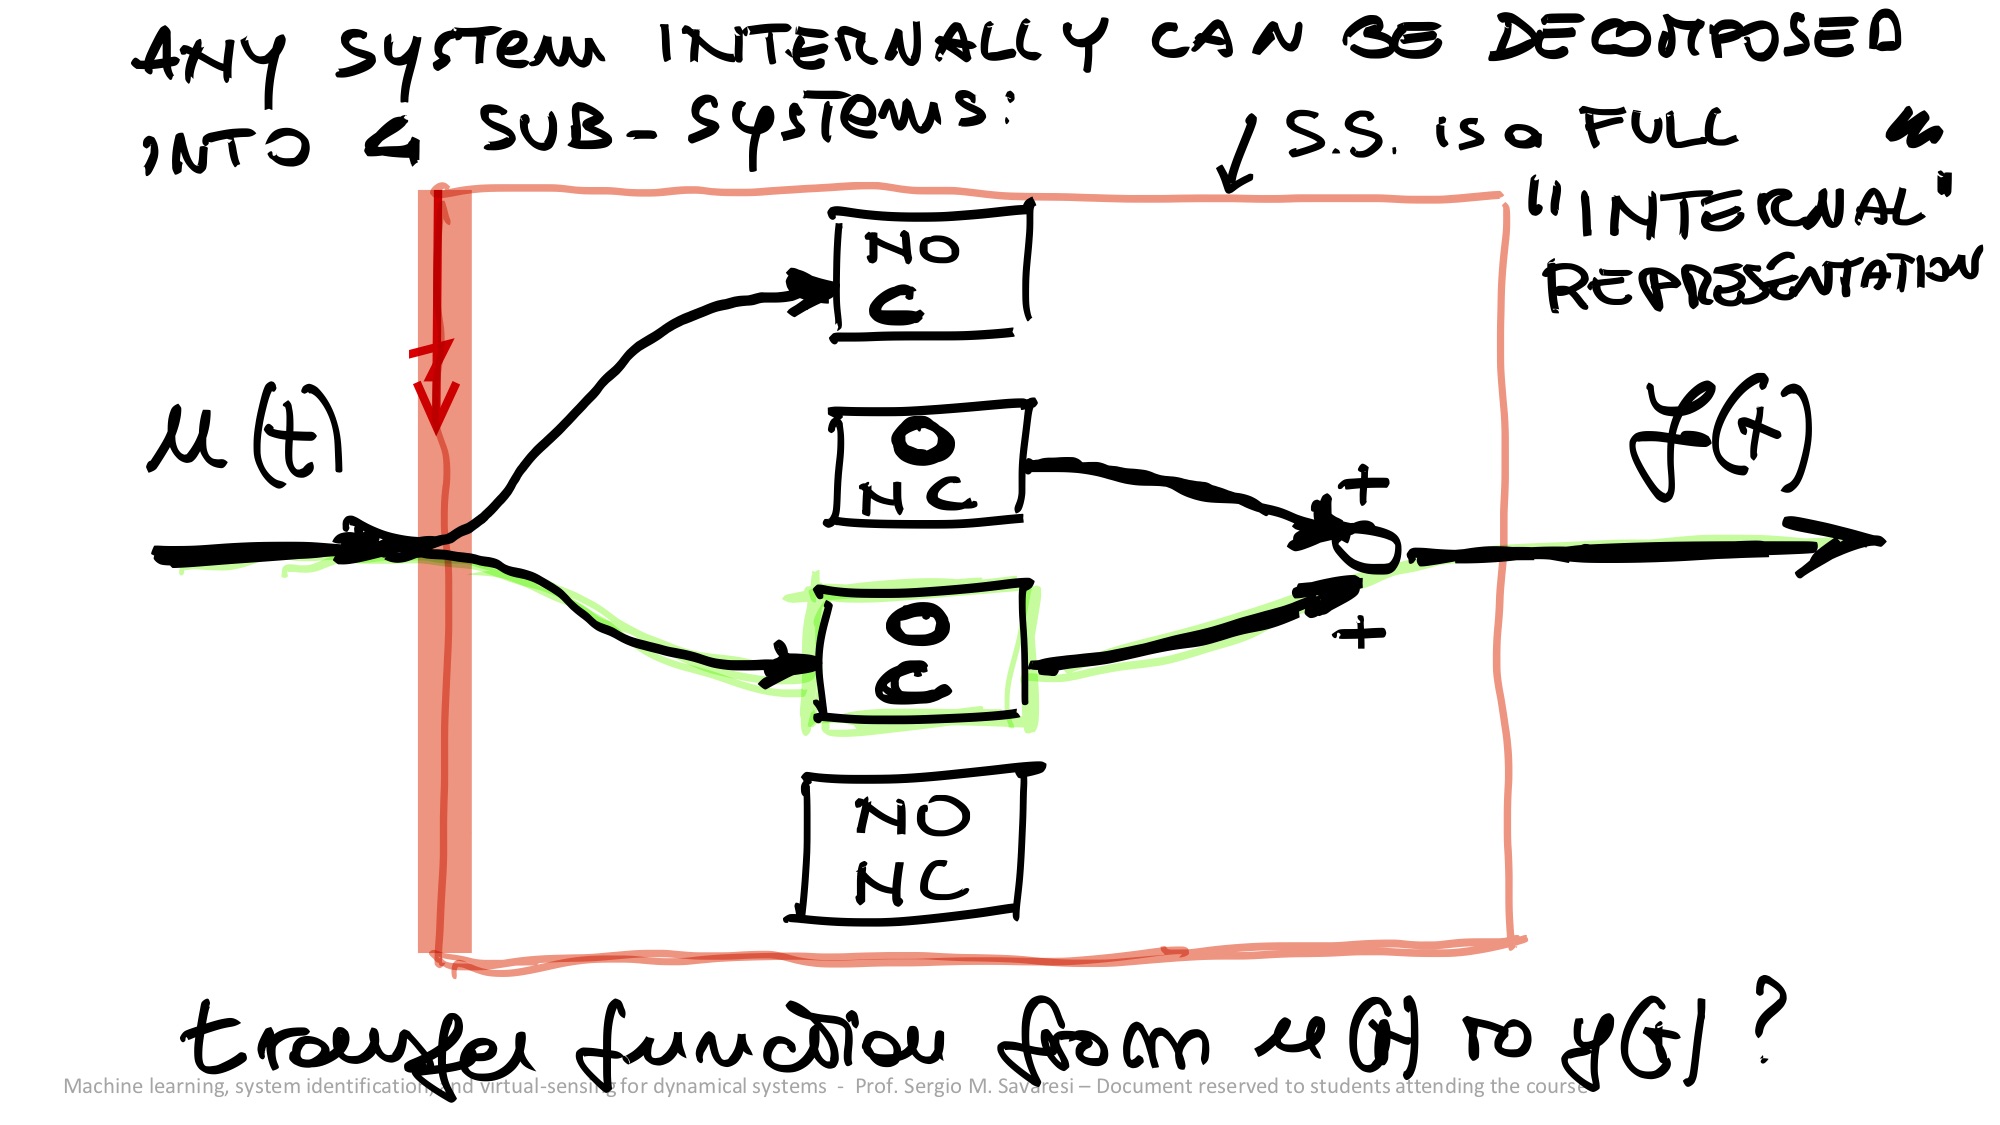 ANY SYSTEM INTERNALLY CAN BE DECOMPOSED
INTO 4 SUB-SYSTEMS:
S.S. is a FULL
"INTERNAL"
REPRESENTATION
NO
C
u(t)
O
NC
+
y(t)
O
C
+
NO
NC
transfer function from u(t) to y(t)?
Machine learning, system identification, and virtual-sensing for dynamical systems - Prof. Sergio M. Savaresi – Document reserved to students attending the course